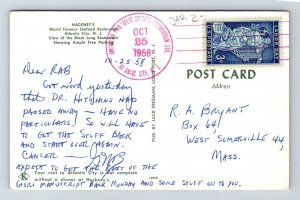 HACKNEY'S
World Famous Seafood Restaurant
Atlantic City, N. J.
View of the Block Long Restaurant
Showing Ample Free Parking
10-25-58
OCT
25
1958
3¢
POST CARD
Address
Dear RAB
Got word yesterday
that DR. Hitchens had
passed away - Have no
particulars. So will have
to get the stuff back
and start over again.
Cancer -
expect to get the rest of the
manuscript back Monday and some stuff on to you.
Your visit to Atlantic City is not complete
without a dinner at Hackney's
R. A. Bryant
Box 641
West Somerville 44
Mass.